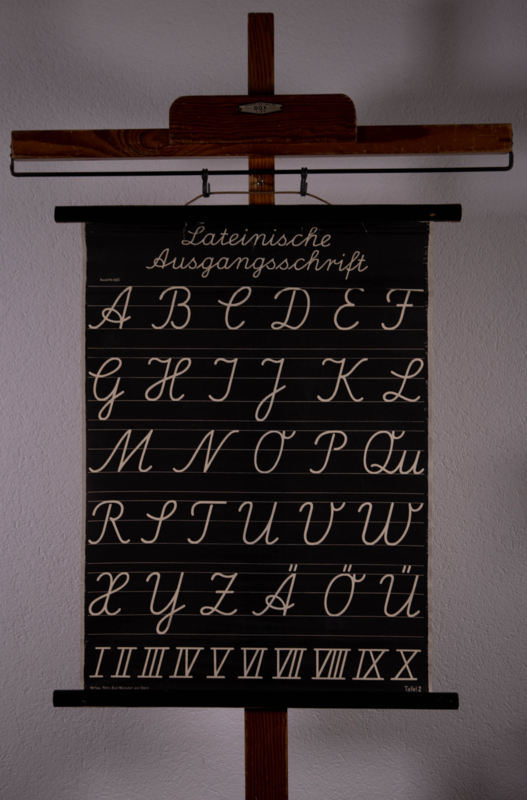 Lateinische
Ausgangsschrift
A B C D E F
G H I J K L
M N O P Qu
R S T U V W
X Y Z Ä Ö Ü
I II III IV V VI VII VIII IX X
Tafel 2